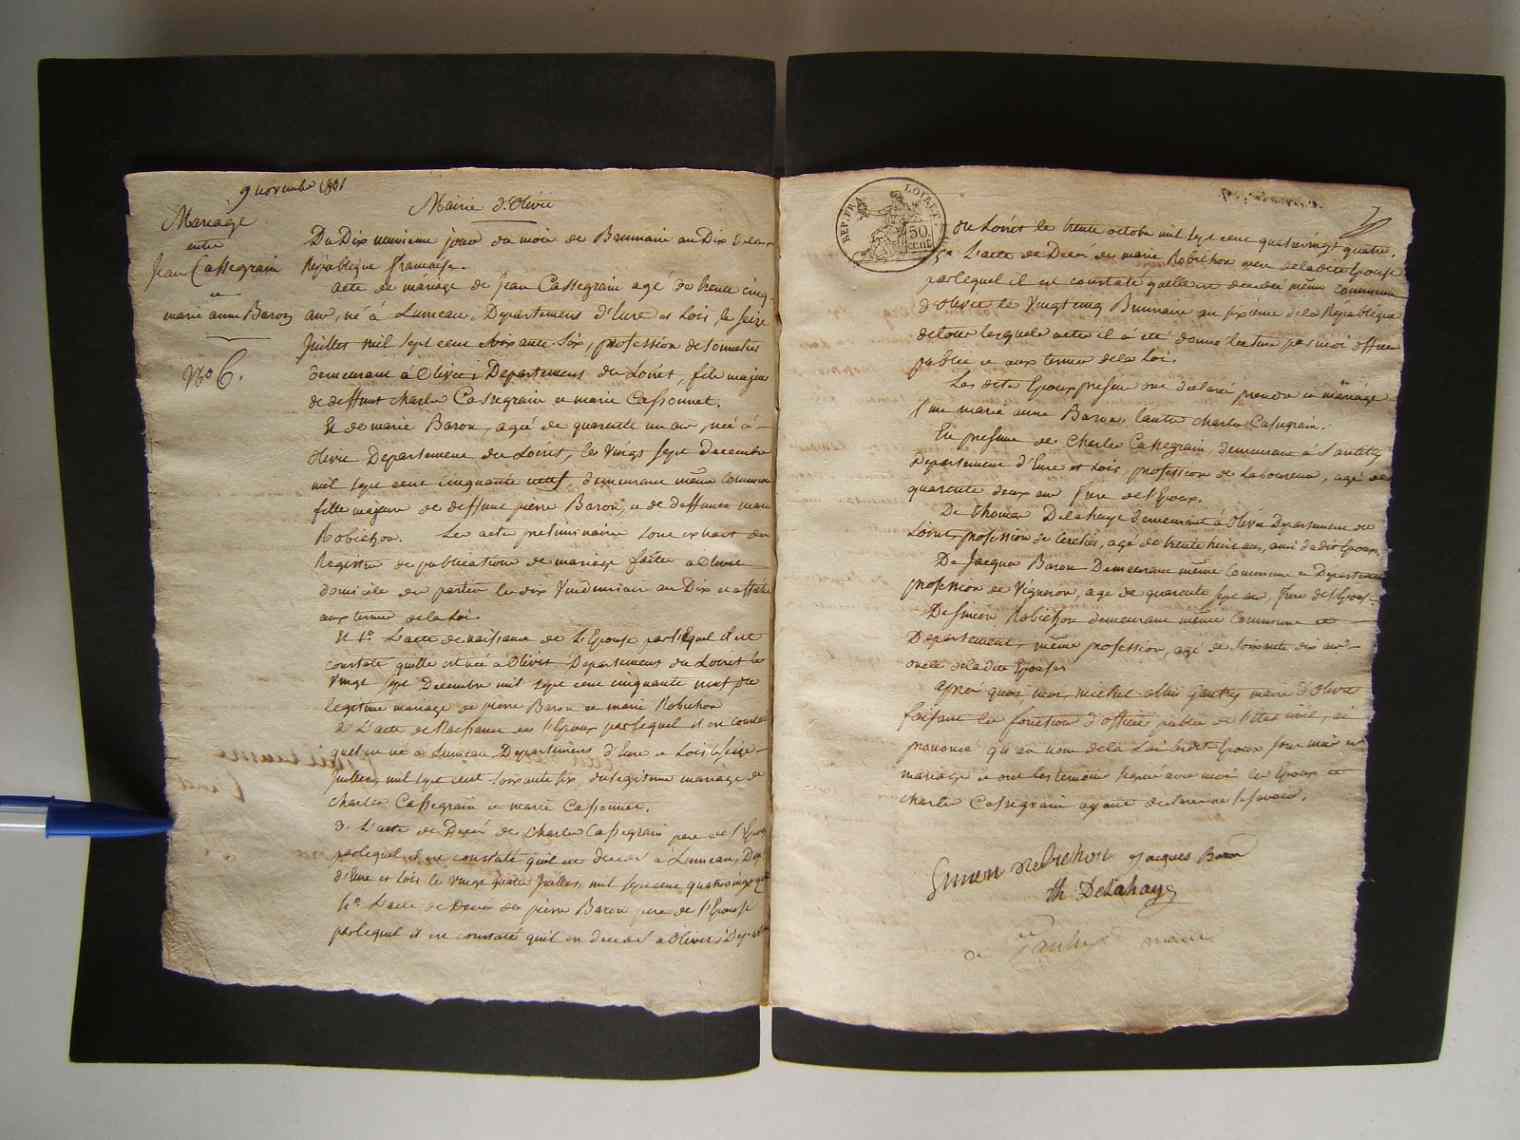 9 novembre 1801
Mairie d'Olivet
Mariage
entre
Jean Cassegrain
et
marie anne Baron
No 6.
Du Dix neuvieme jour du mois de Brumaire an Dix de la
Republique française.
acte de mariage de Jean Cassegrain agé de trente cinq
ans, né à Lumeau, Departement d'Eure et Loir, le seize
Juillet mil sept cent soixante six, profession de
demeurant à Olivet Departement du Loiret, fils majeur
de deffunt charles Cassegrain et marie Cassonnet.
Et de marie Baron, agée de quarante un ans, née à
olivet Departement du Loiret, le Vingt sept Decembre
mil sept cent cinquante neuf, demeurant même commune
fille majeure de deffunt pierre Baron, et de deffunte marie
Robichon. Les actes preliminaires sont extrait du
Registre de publication de mariage faites a Olivet
domicile des parties le dix Vendemiaire an Dix et affiché
aux termes de la Loi.
Et 1º L'acte de naissance de l'Epouse par lequel il est
constaté qu'elle est née a Olivet Departement du Loiret le
Vingt sept Decembre mil sept cent cinquante neuf du
legitime mariage de pierre Baron et marie Robichon
2 L'acte de Naissance de l'Epoux par lequel il est constaté
qu'il est né a Lumeau Departement d'Eure et Loir le seize
juillet mil sept cent soixante six, du legitime mariage de
charles Cassegrain et marie Cassonnet.
3. L'acte de Decés de Charles Cassegrain pere de l'Epoux
par lequel il est constaté qu'il est decedé à Lumeau, Dep
d'Eure et Loir le vingt quatre Juillet mil sept cent quatre vingt
4º L'acte de Decés de pierre Baron pere de l'Epouse
par lequel il est constaté qu'il est decedé a Olivet Departement
REP. FRA. LOIRET
50 CENT
du Loiret le trente octobre mil sept cent quatre vingt quatre.
5º L'acte de Decés de marie Robichon mere de la dite Epouse
par lequel il est constaté qu'elle est decedée même commune
d'olivet le Vingt cinq Brumaire an sixieme de la Republique
de tous lesquels actes il a été donné lecture par moi officier
public et aux termes de la Loi.
Les dits Epoux presens ont déclaré prendre en mariage
l'une marie anne Baron, l'autre charles Cassegrain.
En presence de Charles Cassegrain, demeurant à Santilly
Departement d'Eure et Loir, profession de Laboureur, agé de
quarante deux ans frere de l'Epoux.
De thomas Delahaye demeurant à Olivet Departement du
Loiret, profession de Cerclier, agé de trente huit ans, ami dudit Epoux,
De Jacques Baron Demeurant même Commune et Departement
profession de Vigneron, agé de quarante sept ans, frere de l'Epouse.
De Simon Robichon demeurant même Commune et
Departement, même profession, agé de soixante dix ans
oncle de la dite Epouse
après quoi, moi, michel maire d'Olivet
faisant les fonctions d'officier public de l'Etat civil, ai
prononcé qu'au nom de la Loi lesdits Epoux sont unis en
mariage et ont les temoins signé avec moi les Epoux et
charles Cassegrain ayant declaré ne le savoir.
Simon Robichon Jacques Baron
th Delahaye
maire